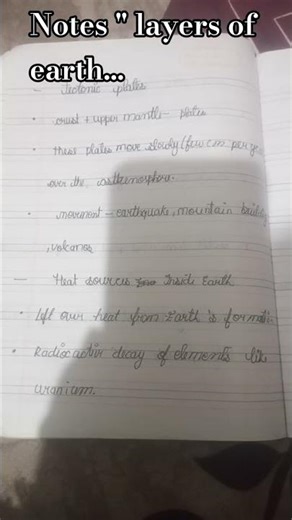 Notes " layers of
earth...
— Tectonic plates
• crust + upper mantle - plates
• These plates move slowly (few cm per ye
over the asthenosphere.
• movement - earthquake, mountain build
, volcanoe
— Heat sources Inside Earth
• Left our heat from Earth's formati
• Radioactive decay of elements like
uranium.